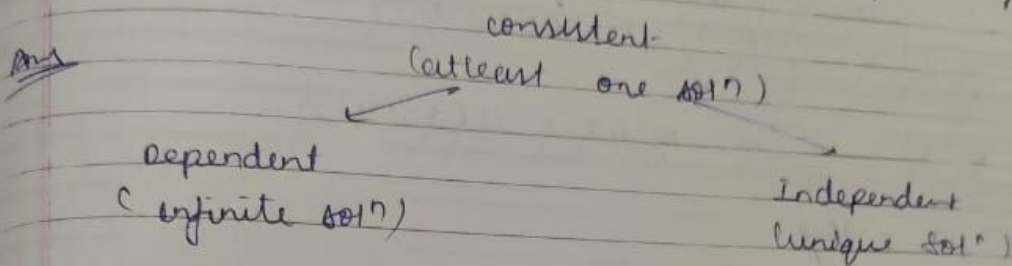 consistent
Ans
(atleast one solⁿ)
Dependent
(infinite solⁿ)
Independent
(unique solⁿ)